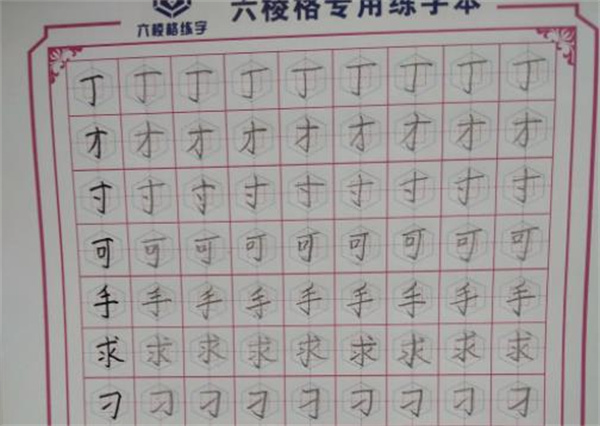 六棱格专用练字本
六棱格练字
丁丁丁丁丁丁丁丁丁
才才才才才才才才才
寸寸寸寸寸寸寸寸寸
可可可可可可可可可
手手手手手手手手手
求求求求求求求求求
刁刁刁刁刁刁刁刁刁